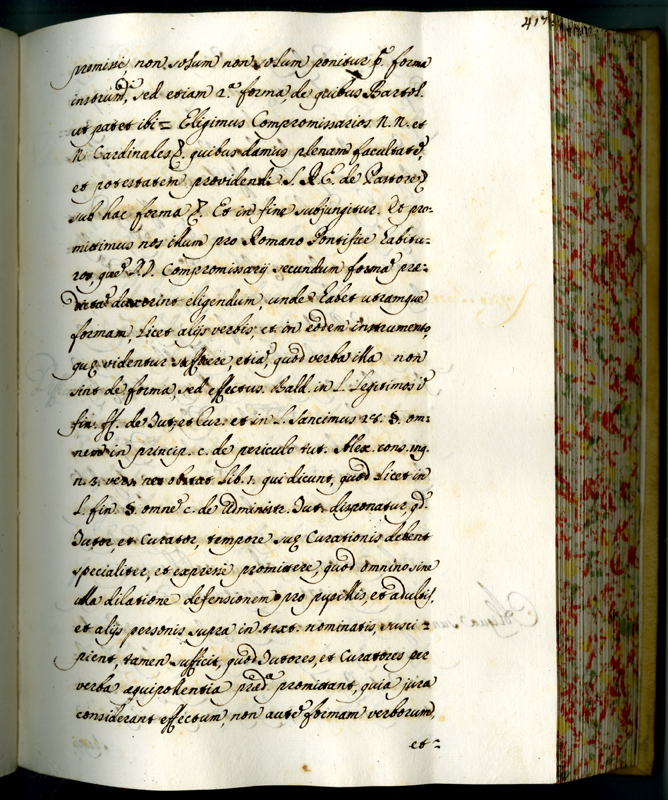 417
promissi non solum non solum ponitur p.ª forma
instrumᵗⁱ, sed etiam 2.ª forma, de quibus Bartol.
ut patet ibi = Eligimus Compromissarios N. N. et
N. Cardinales &. quibus damus plenam facultatē,
et potestatem providendi S. R. E. de Pastore &
sub hac forma &. Et in fine subjungitur. Et pro-
mittimus nos illum pro Romano Pontifice habitu-
ros, quē D. D. Compromissarij secundum formā præ-
dictā duxerint eligendum, unde habet utramque
formam, licet alijs verbis, et in eodem instrumento,
quæ videntur sufficere, etiā, quod verba illa non
sint de forma, sed effectus. Bald. in l. Legitimos
fin. ff. de Tut. et Cur. et in l. Sancimus 27. §. om-
nem in princip. c. de periculo tut. Alex. cons. 119.
n. 3. vers. nec obstat lib. 1. qui dicunt, quod licet in
l. fin. §. omnē c. de administr. Tut. disponatur, qd.
Tutor, et Curator, tempore suæ Curationis debent
specialiter, et expresse promittere, quod omnino sine
ulla dilatione defensionem pro pupillis, et adultis,
et alijs personis supra in text. nominatis, susci-
pient, tamen sufficit, quod Tutores, et Curatores per
verba æquipollentia præd.ª promittant, quia jura
considerant effectum, non autē formam verborum,
et-